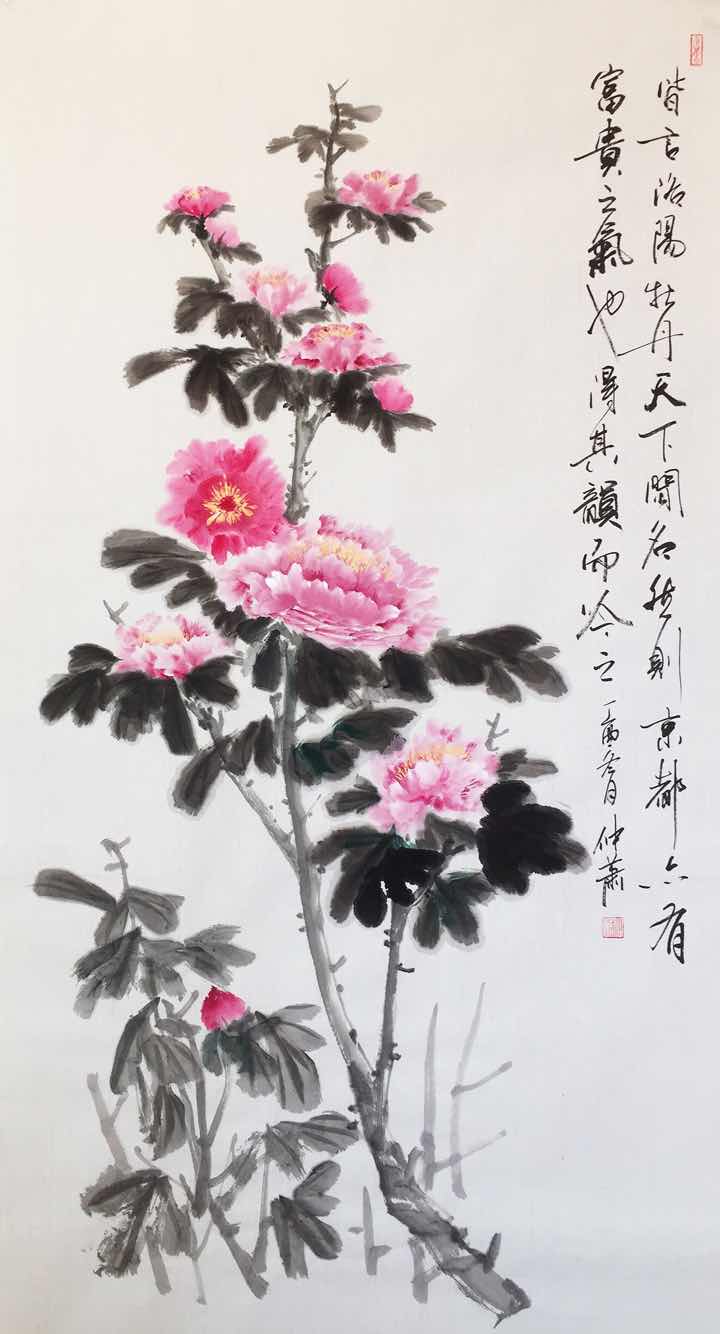 皆言洛陽牡丹天下聞名然則京都亦有
富貴之氣也得其韻而吟之丁酉冬月仲蕭